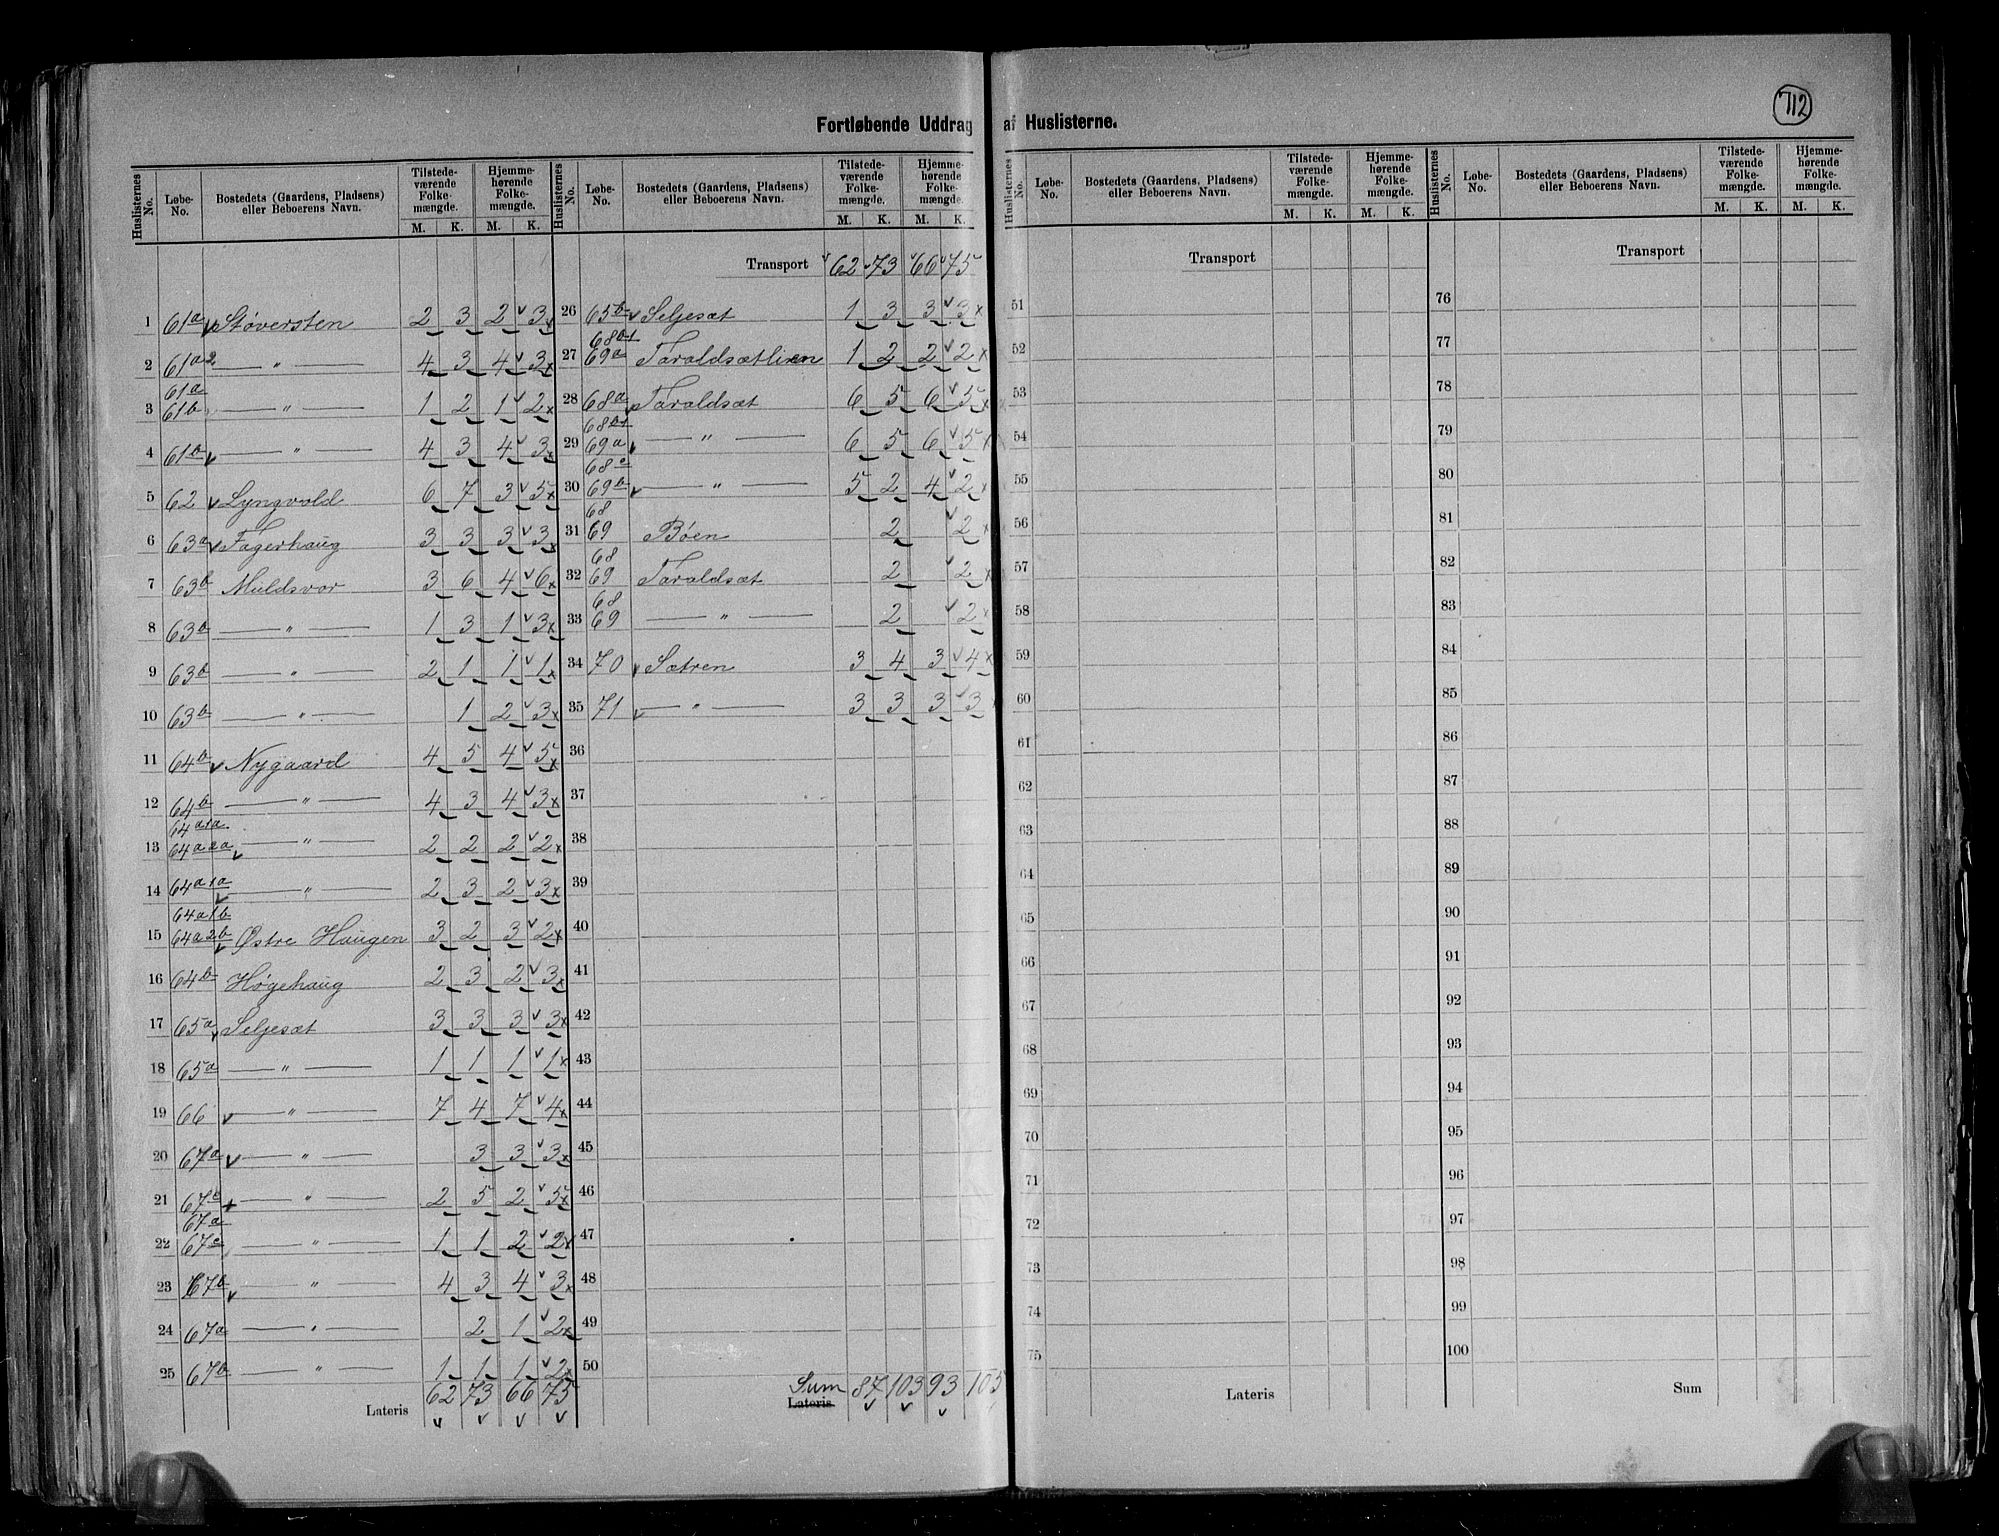 712
Fortløbende Uddrag af Huslisterne.
Huslisternes No. Løbe-No. Bostedets (Gaardens, Pladsens) eller Beboerens Navn. Tilstede-værende Folke-mængde. M. K. Hjemme-hørende Folke-mængde. M. K.
1 61a Støversten 2 3 2 3
2 61a2 " 4 3 4 3
3 61a 61b " 1 2 1 2
4 61b " 4 3 4 3
5 62 Lyngvold 6 7 3 5
6 63a Fagerhaug 3 3 3 3
7 63b Muldsvor 3 6 4 6
8 63b " 1 3 1 3
9 63b " 2 1 1 1
10 63b " 1 2 3
11 64b Nygaard 4 5 4 5
12 64b " 4 3 4 3
13 64a1a 64a2a " 2 2 2 2
14 64a1a " 2 3 2 3
15 64a1b 64a2b Østre Haugen 3 2 3 2
16 64b Høgehaug 2 3 2 3
17 65a Seljesæt 3 3 3 3
18 65a " 1 1 1 1
19 66 " 7 4 7 4
20 67a " 3 3 3
21 67b " 2 5 2 5
22 67a 67c " 1 1 2 2
23 67b " 4 3 4 3
24 67a " 2 1 2
25 67b " 1 1 1 2
Lateris 62 73 66 75
Huslisternes No. Løbe-No. Bostedets (Gaardens, Pladsens) eller Beboerens Navn. Tilstede-værende Folke-mængde. M. K. Hjemme-hørende Folke-mængde. M. K.
Transport 62 73 66 75
26 65b Seljesæt 1 3 3 3
27 68b1 69a Taraldsætlien 1 2 2 2
28 68a Taraldsæt 6 5 6 5
29 68b1 69a " 6 5 6 5
30 68c 69b " 5 2 4 2
31 68 69 Bøen 2 2
32 68 69 Taraldsæt 2 2
33 68 69 " 2 2
34 70 Sætren 3 4 3 4
35 71 " 3 3 3 3
36
37
38
39
40
41
42
43
44
45
46
47
48
49
50
Sum Lateris 87 103 93 105
Huslisternes No. Løbe-No. Bostedets (Gaardens, Pladsens) eller Beboerens Navn. Tilstede-værende Folke-mængde. M. K. Hjemme-hørende Folke-mængde. M. K.
Transport
51
52
53
54
55
56
57
58
59
60
61
62
63
64
65
66
67
68
69
70
71
72
73
74
75
Lateris
Huslisternes No. Løbe-No. Bostedets (Gaardens, Pladsens) eller Beboerens Navn. Tilstede-værende Folke-mængde. M. K. Hjemme-hørende Folke-mængde. M. K.
Transport
76
77
78
79
80
81
82
83
84
85
86
87
88
89
90
91
92
93
94
95
96
97
98
99
100
Sum